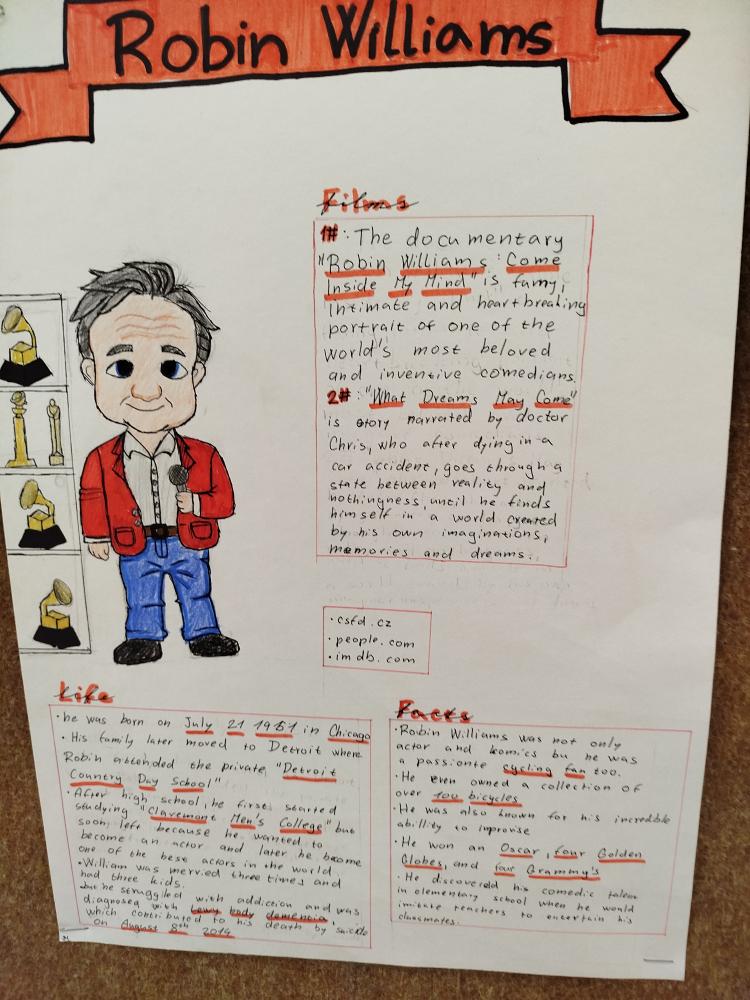 Robin Williams
Films
1#: The documentary
"Robin Williams: Come
Inside My Mind" is funny,
intimate and heartbreaking
portrait of one of the
world's most beloved
and inventive comedians.
2#: "What Dreams May Come"
is story narrated by doctor
Chris, who after dying in a
car accident, goes through a
state between reality and
nothingness, until he finds
himself in a world created
by his own imaginations,
memories and dreams.
• csfd.cz
• people.com
• imdb.com
Life
• he was born on July 21 1951 in Chicago
• His family later moved to Detroit where
Robin attehded the private "Detroit
Country Day School"
• After high school, he first started
studying "Clavemont Men's College" but
soon left because he wanted to
become an actor and later he became
one of the best actors in the world.
• William was merried three times and
had three kids.
but he struggled with addiction and was
diagnosed with Lewy body dementia,
which contributed to his death by suicide
on August 8th 2014
Facts
• Robin Williams was not only
actor and komics but he was
a passionte cycling fan too.
• He even owned a collection of
over 100 bicycles
• He was also known for his incredible
abillity to improvise
• He won an Oscar, four Golden
Globes, and four Grammy's
• He discovered his comedic talent
in elementary school when he would
imitate teachers to entertain his
classmates.